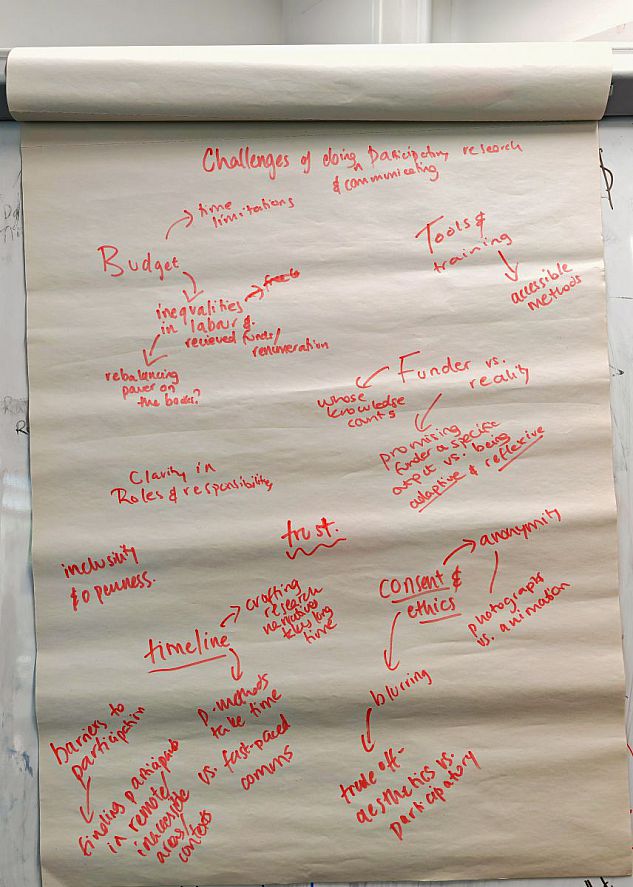 Challenges of doing Participatory research
& communicating
time
limitations
Budget
inequalities
in labour &
recieved funds/
renumeration
rebalancing
power on
the books?
Tools &
training
accessible
methods
Funder vs.
reality
whose
knowledge
counts
promising
funder a specific
output vs. being
adaptive & reflexive
Clarity in
Roles & responsibility
trust.
inclusivity
& openness.
consent &
ethics
anonymity
photographs
vs. animation
blurring
trade off-
aesthetics vs.
participatory
timeline
crafting
research
narrative
takes long
time
P. methods
take time
vs. fast-paced
comms
barriers to
participation
finding participants
in remote/
inaccessible
areas/
contexts